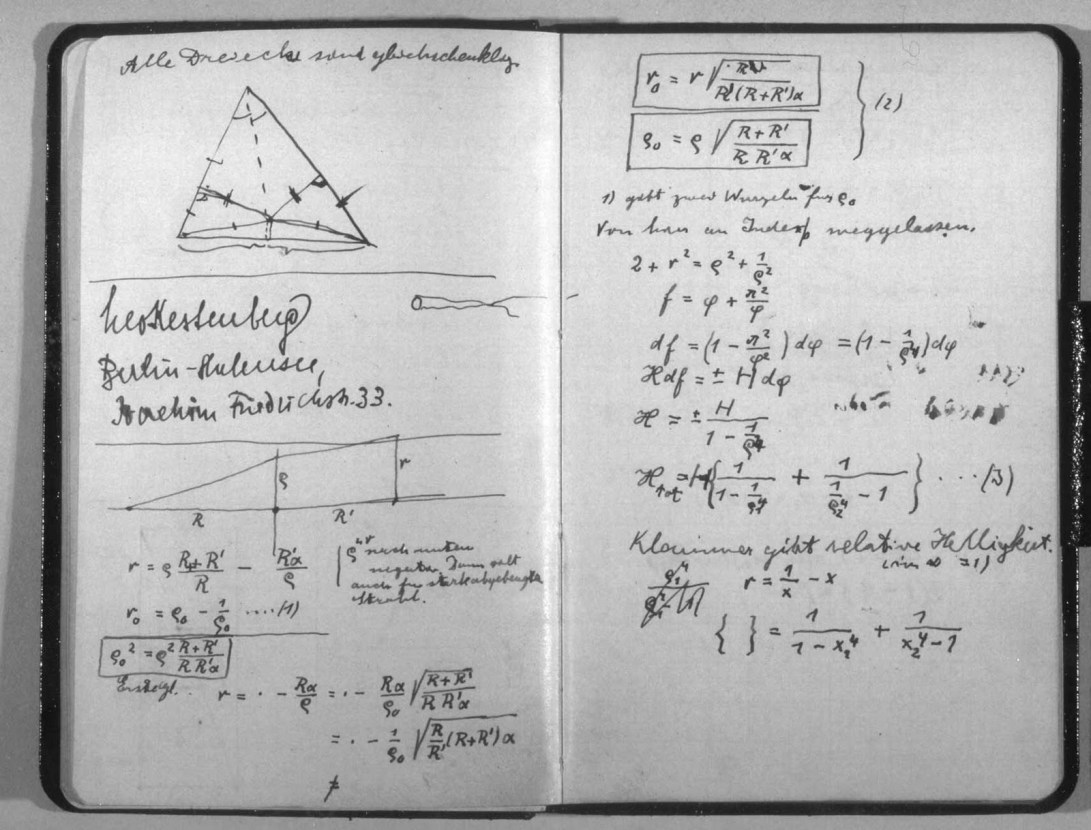 Alle Dreiecke sind gleichschenklig.
Leo Kestenberg
Berlin-Halensee,
Joachim Friedrichstr. 33.
ρ
r
R
R'
r = ρ (R+R')/R − R'α/ρ
ρ nach unten
negativ. Dann gilt
auch für stark abgebeugten
Strahl.
r₀ = ρ₀ − 1/ρ₀ ....(1)
ρ₀² = ρ² (R+R')/(R R'α)
r = · − Rα/ρ = · − Rα/ρ₀ √((R+R')/(R R'α))
= · − 1/ρ₀ √(R/R' (R+R')α)
r₀ = r √(R/(R'(R+R')α))
ρ₀ = ρ √((R+R')/(R R'α))
} (2)
1) gibt zwei Wurzeln für ρ₀
Von hier an Index weggelassen.
2 + r² = ρ² + 1/ρ²
f = φ + π²/φ
df = (1 − π²/φ²) dφ = (1 − 1/ρ⁴) dφ
H df = ± H dφ
H = ± H/(1 − 1/ρ⁴)
H_tot = H {1/(1 − 1/ρ₁⁴) + 1/(1/ρ₂⁴ − 1)} ....(3)
Klammer gibt relative Helligkeit.
(im ∞ = 1)
r = 1/x − x
{ } = 1/(1 − x₁⁴) + 1/(x₂⁴ − 1)